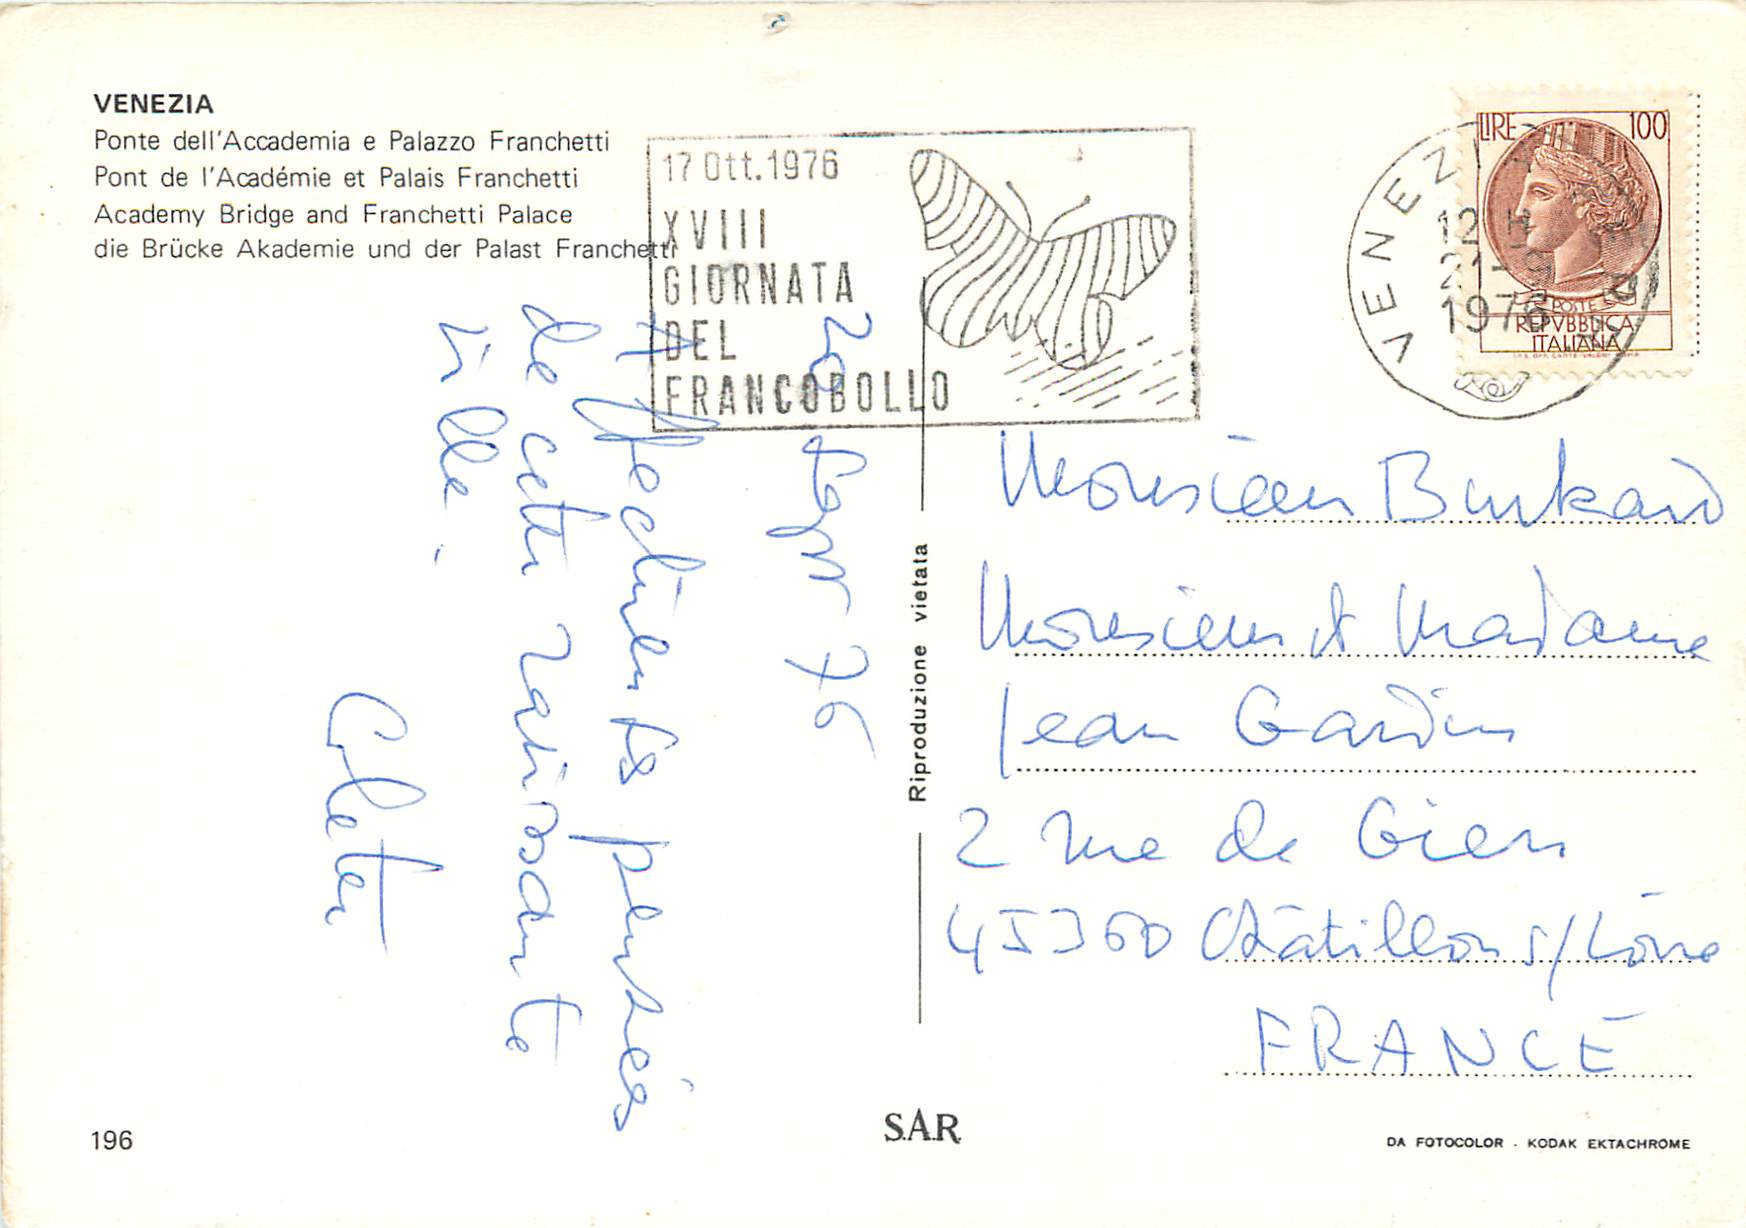 VENEZIA
Ponte dell'Accademia e Palazzo Franchetti
Pont de l'Académie et Palais Franchetti
Academy Bridge and Franchetti Palace
die Brücke Akademie und der Palast Franchetti
17 Ott.1976
XVIII
GIORNATA
DEL
FRANCOBOLLO
VENEZIA
12
21-9
1976
LIRE 100
POSTE
REPVBBLICA
ITALIANA
20 Sept 76
Affectueuses pensées
de cette ravissante
ville.
Colette
Riproduzione vietata
Monsieur Burkard
Monsieur et Madame
Jean Gardin
2 rue de Gien
45360 Châtillon s/Loire
FRANCE
196
S.A.R
DA FOTOCOLOR - KODAK EKTACHROME